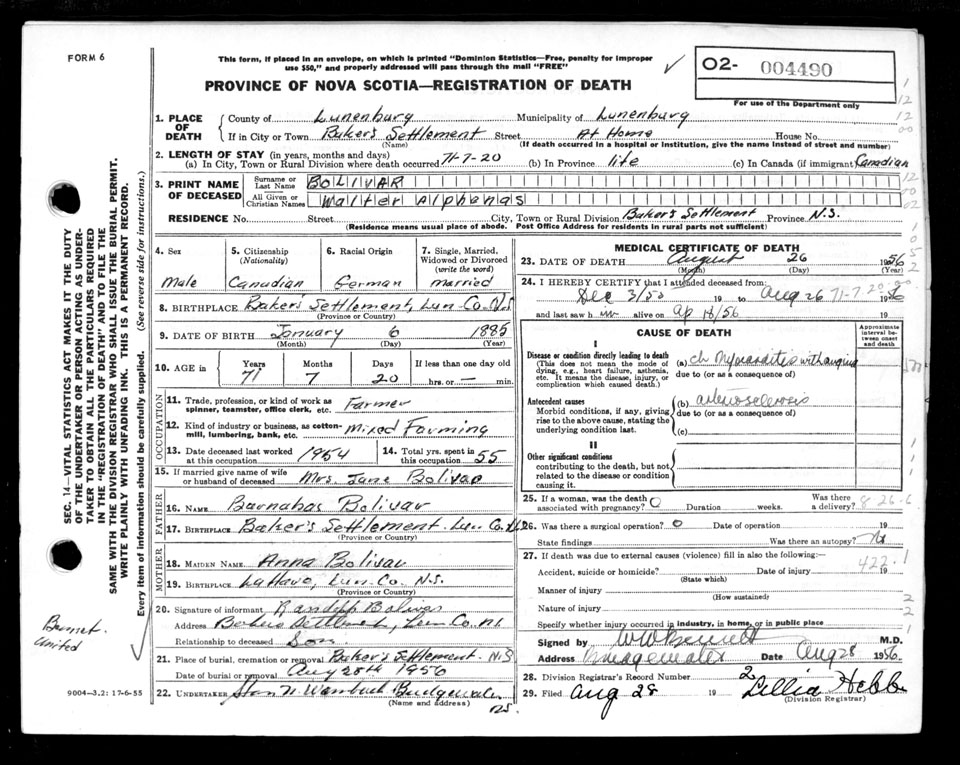 FORM 6
This form, if placed in an envelope, on which is printed "Dominion Statistics—Free, penalty for improper
use $50," and properly addressed will pass through the mail "FREE"
PROVINCE OF NOVA SCOTIA—REGISTRATION OF DEATH
O2- 004490
For use of the Department only
1. PLACE OF DEATH County of Lunenburg Municipality of Lunenburg
If in City or Town Baker's Settlement Street At Home House No.
(Name) (If death occurred in a hospital or institution, give the name instead of street and number)
2. LENGTH OF STAY (in years, months and days)
(a) In City, Town or Rural Division where death occurred 71-7-20 (b) In Province life (c) In Canada (if immigrant) Canadian
3. PRINT NAME OF DECEASED
Surname or Last Name BOLIVAR
All Given or Christian Names Walter Alphenas
RESIDENCE No. Street City, Town or Rural Division Baker's Settlement Province N.S.
(Residence means usual place of abode. Post Office Address for residents in rural parts not sufficient)
4. Sex
Male
5. Citizenship (Nationality)
Canadian
6. Racial Origin
German
7. Single, Married, Widowed or Divorced (write the word)
married
8. BIRTHPLACE Baker's Settlement, Lun. Co. N.S
(Province or Country)
9. DATE OF BIRTH January 6 1885
(Month) (Day) (Year)
10. AGE in Years Months Days If less than one day old
71 7 20 hrs. or — min.
OCCUPATION
11. Trade, profession, or kind of work as spinner, teamster, office clerk, etc. Farmer
12. Kind of industry or business, as cotton-mill, lumbering, bank, etc. Mixed Farming
13. Date deceased last worked at this occupation 1954
14. Total yrs. spent in this occupation 55
15. If married give name of wife or husband of deceased Mrs. Jane Bolivar
FATHER
16. NAME Barnabas Bolivar
17. BIRTHPLACE Baker's Settlement Lun. Co. N.S.
(Province or Country)
MOTHER
18. MAIDEN NAME Anna Bolivar
19. BIRTHPLACE LaHave, Lun. Co. N.S.
(Province or Country)
20. Signature of informant Bolivar
Address Bakers Settlement, Lun Co. N.S.
Relationship to deceased Son
21. Place of burial, cremation or removal Baker's Settlement N.S
Date of burial or removal Aug 28th 1956
22. UNDERTAKER Bridgewater
(Name and address) N.S.
MEDICAL CERTIFICATE OF DEATH
23. DATE OF DEATH August 26 1956
(Month) (Day) (Year)
24. I HEREBY CERTIFY that I attended deceased from:
Dec 3/50 19 to Aug 26 1956
71-7-20
and last saw h im alive on Ap 18/56 19
CAUSE OF DEATH
Approximate interval between onset and death
I
Disease or condition directly leading to death
(This does not mean the mode of dying, e.g., heart failure, asthenia, etc. It means the disease, injury, or complication which caused death.)
(a) ch Myocarditis with angina
due to (or as a consequence of)
Antecedent causes
Morbid conditions, if any, giving rise to the above cause, stating the underlying condition last.
(b) arteriosclerosis
due to (or as a consequence of)
(c)
II
Other significant conditions
contributing to the death, but not related to the disease or condition causing it.
25. If a woman, was the death associated with pregnancy? 0 Duration weeks. Was there a delivery?
8-26-6
26. Was there a surgical operation? 0 Date of operation 19
State findings Was there an autopsy? No
27. If death was due to external causes (violence) fill in also the following:
422.1
Accident, suicide or homicide? Date of injury 19
(State which)
Manner of injury
(How sustained)
Nature of injury
Specify whether injury occurred in industry, in home, or in public place
Signed by W W Bennett M.D.
Address Bridgewater Date Aug 28 1956.
28. Division Registrar's Record Number 2
29. Filed Aug 28 19 Lillia Hebb
(Division Registrar)
SEC. 14—VITAL STATISTICS ACT MAKES IT THE DUTY
OF THE UNDERTAKER OR PERSON ACTING AS UNDER-
TAKER TO OBTAIN ALL THE PARTICULARS REQUIRED
IN THE "REGISTRATION OF DEATH" AND TO FILE THE
SAME WITH THE DIVISION REGISTRAR WHO SHALL ISSUE THE BURIAL PERMIT.
WRITE PLAINLY WITH UNFADING INK. THIS IS A PERMANENT RECORD.
Every item of information should be carefully supplied. (See reverse side for instructions.)
United
9004-3.2: 17-6-55